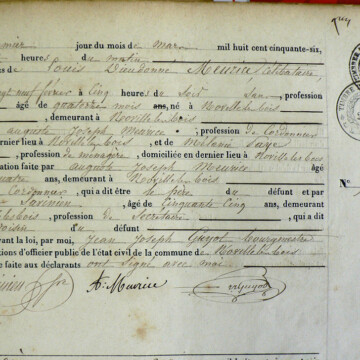 premier jour du mois de mars mil huit cent cinquante-six,
heures du matin
de Louis Dieudonné Meurice, célibataire,
vingt neuf février à Cinq heures du Soir San profession
âgé de quatorze mois ans, né à Noville-les-bois
, demeurant à Noville-les-bois
auguste Joseph Meurice profession de Cordonnier
dernier lieu à Noville-les-bois et de
profession de ménagère, domiciliée en dernier lieu à Noville-les-bois
ation faite par auguste Joseph Meurice âgé
ans, demeurant à Noville-les-bois
Cordonnier, qui a dit être le père du défunt et par
, âgé de Cinquante Cinq ans, demeurant
profession de Secrétaire, qui a dit
du défunt
vant la loi, par moi, Jean Joseph Guyot bourgmestre
tions d'officier public de l'état civil de la commune de Noville-les-bois
e faite aux déclarants ont signé avec moi
A. Meurice
N°
jour du mois de
heures du